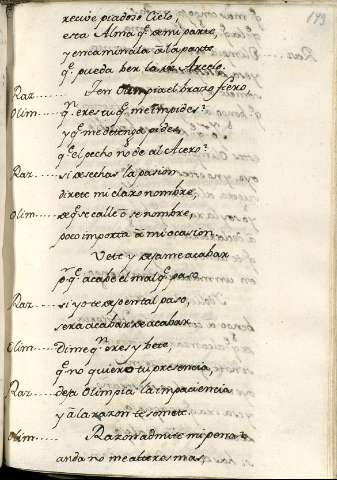 193
recive piadoso Cielo,
esta Alma q.e de mi parte,
y encaminala a la parte
q.e pueda ber la de Arcelo.
Raz..... Ten Olimpia el brazo fiero,
Olim..... q.n eres tu q.e me impides?
y q.e me detenga pides,
q.e el pecho no de al Acero?
Raz..... si desechas la pasion,
direte mi claro nombre,
Olim..... de q.e se calle o se nombre,
poco importa a mi ocasion.
Vete y dejame acabar
p.a q.e acabe el mal q.e paso
Raz..... si yo te dejo en tal paso,
sera acabar de acabar
Olim..... Dime q.n eres y bete,
q.e no quiero tu presencia
Raz..... deja Olimpia la impaciencia
y a la razon te somete.
Olim..... Razon admite mi pena?
anda no me alteres mas,